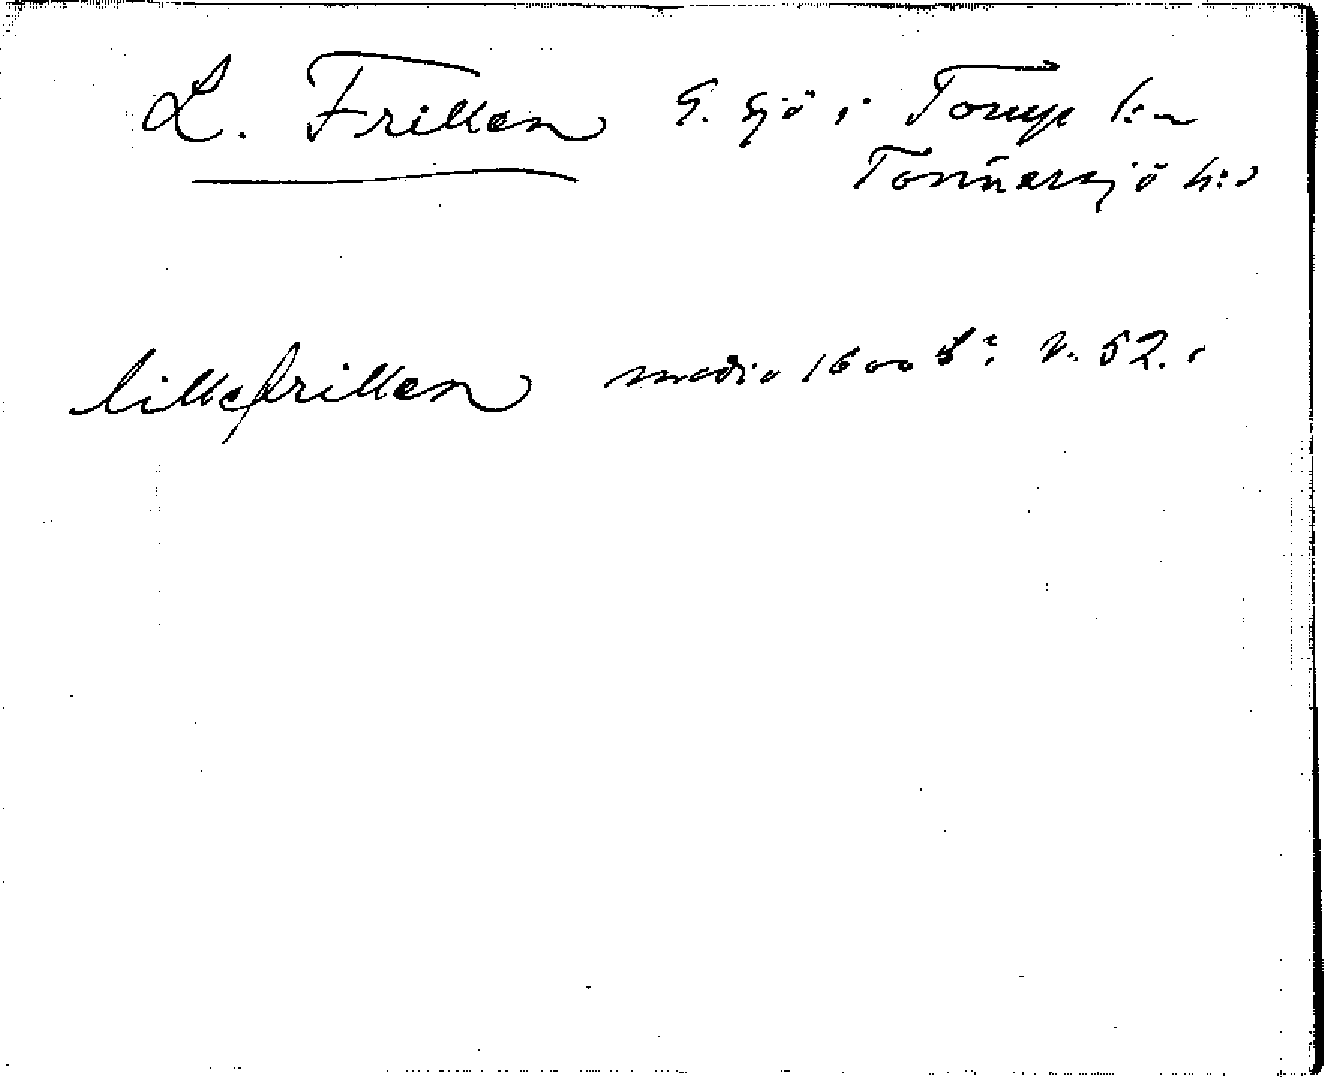 L. Frillen S. sjö i Torup k:n
Tönnersjö h:d
lillefrillen medio 1600 V. 52.